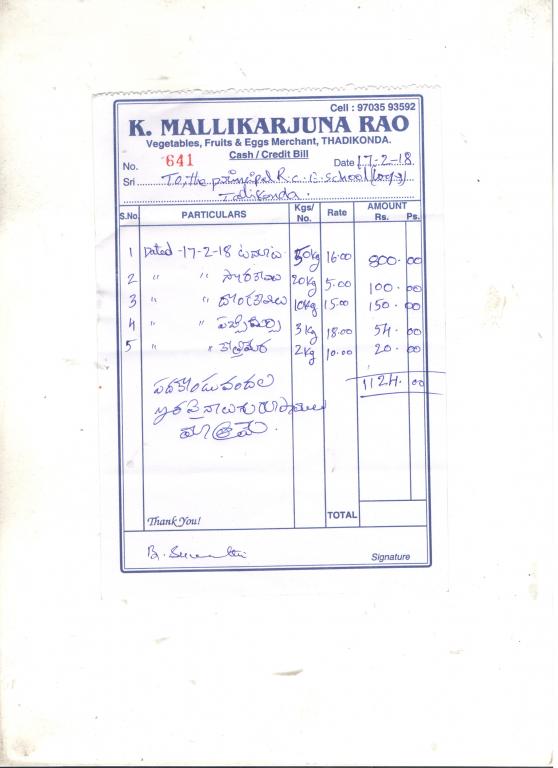 Cell : 97035 93592
K. MALLIKARJUNA RAO
Vegetables, Fruits & Eggs Merchant, THADIKONDA.
Cash / Credit Bill
No. 641 Date 17-2-18
Sri To, the principal R.C. School (Boys)
Tadikonda.
S.No. PARTICULARS Kgs/ No. Rate AMOUNT Rs. Ps.
1 Dated -17-2-18 టమాట 50kg 16.00 800.00
2 " " సొరకాయలు 20kg 5.00 100.00
3 " " దొండకాయలు 10kg 15.00 150.00
4 " " పచ్చిమిర్చి 3kg 18.00 54.00
5 " " కొత్తిమీర 2kg 10.00 20.00
1124.00
పదకొండువందల
ఇరవైనాలుగు రూపాయలు
మాత్రమే.
Thank You!
TOTAL
Signature